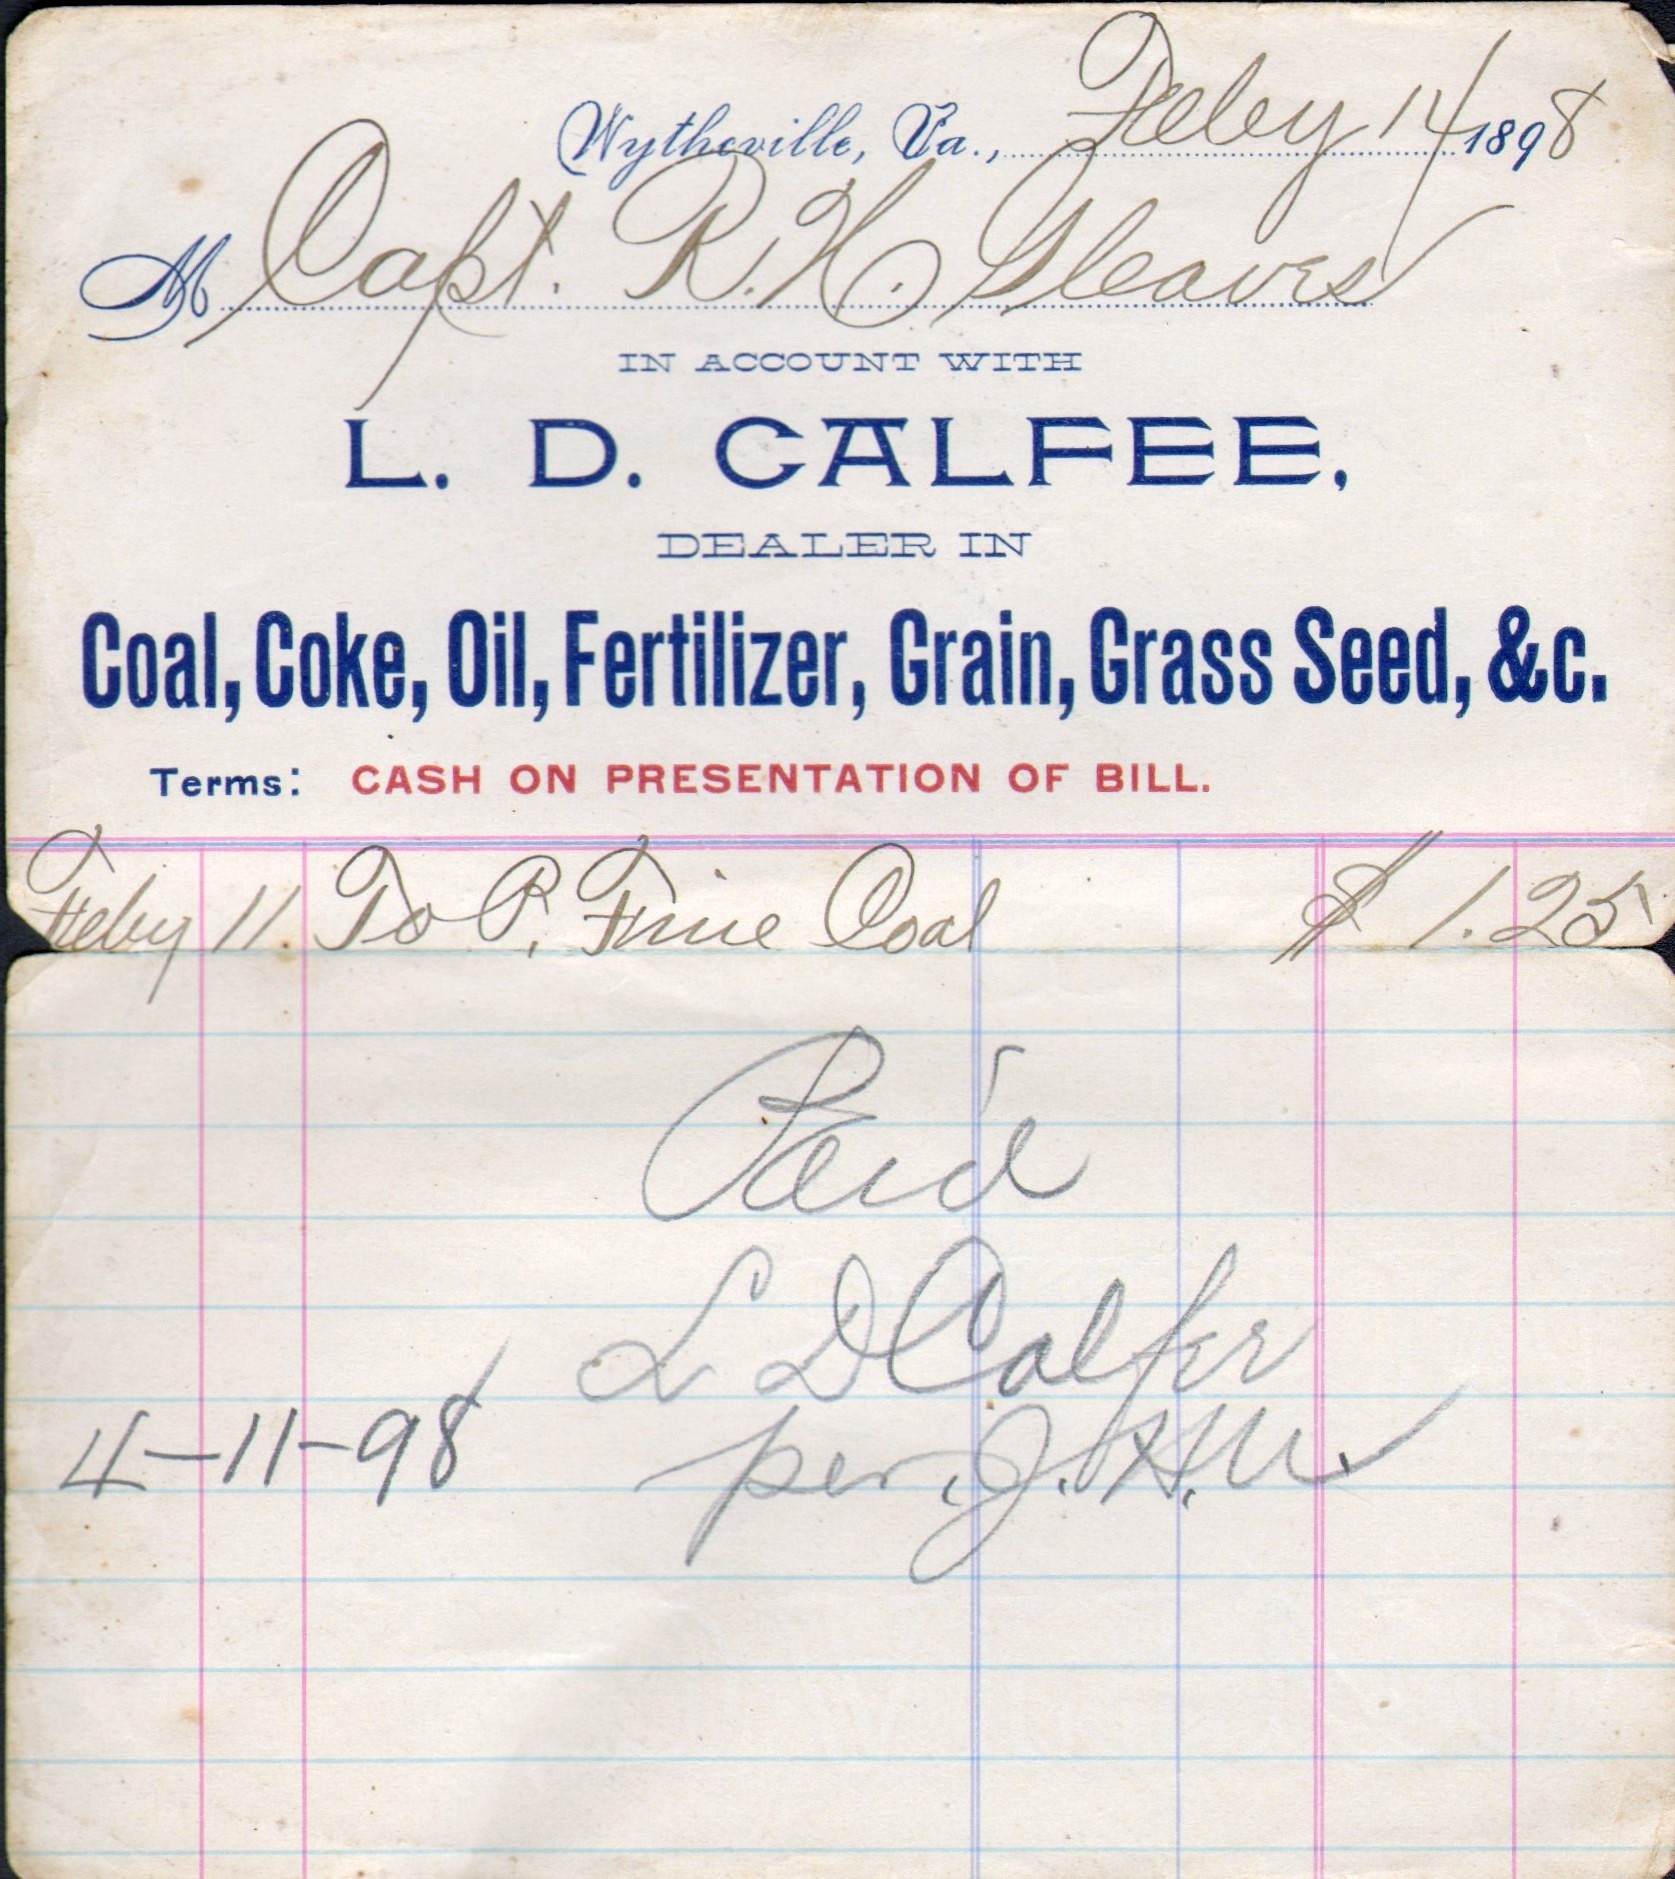 Wytheville, Va., Feby 14 1898
M Capt. R. H. Gleaves
IN ACCOUNT WITH
L. D. CALFEE,
DEALER IN
Coal, Coke, Oil, Fertilizer, Grain, Grass Seed, &c.
Terms: CASH ON PRESENTATION OF BILL.
Feby 11 To P. Fine Coal $ 1.25
Paid
L D Calfee
4-11-98 per. J. H. M.